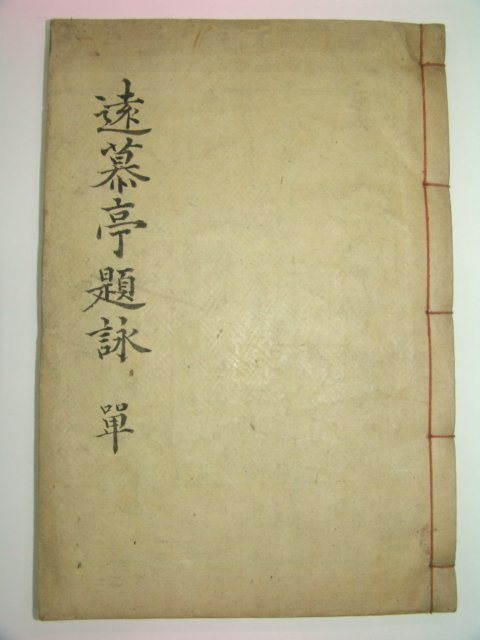 遠慕亭題詠 單